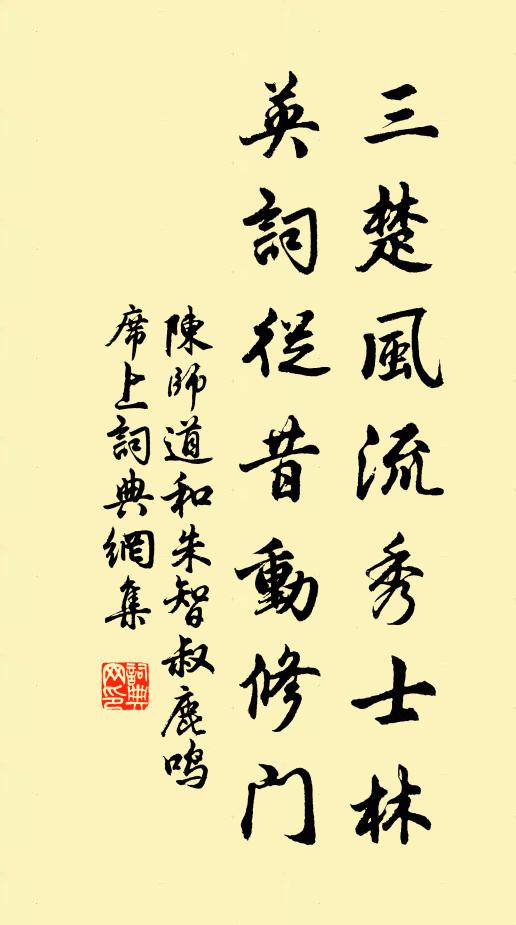 三楚風流秀士林
英詞從昔動修門
陳師道和朱智叔鹿鳴
席上詞典網集
詞典網印